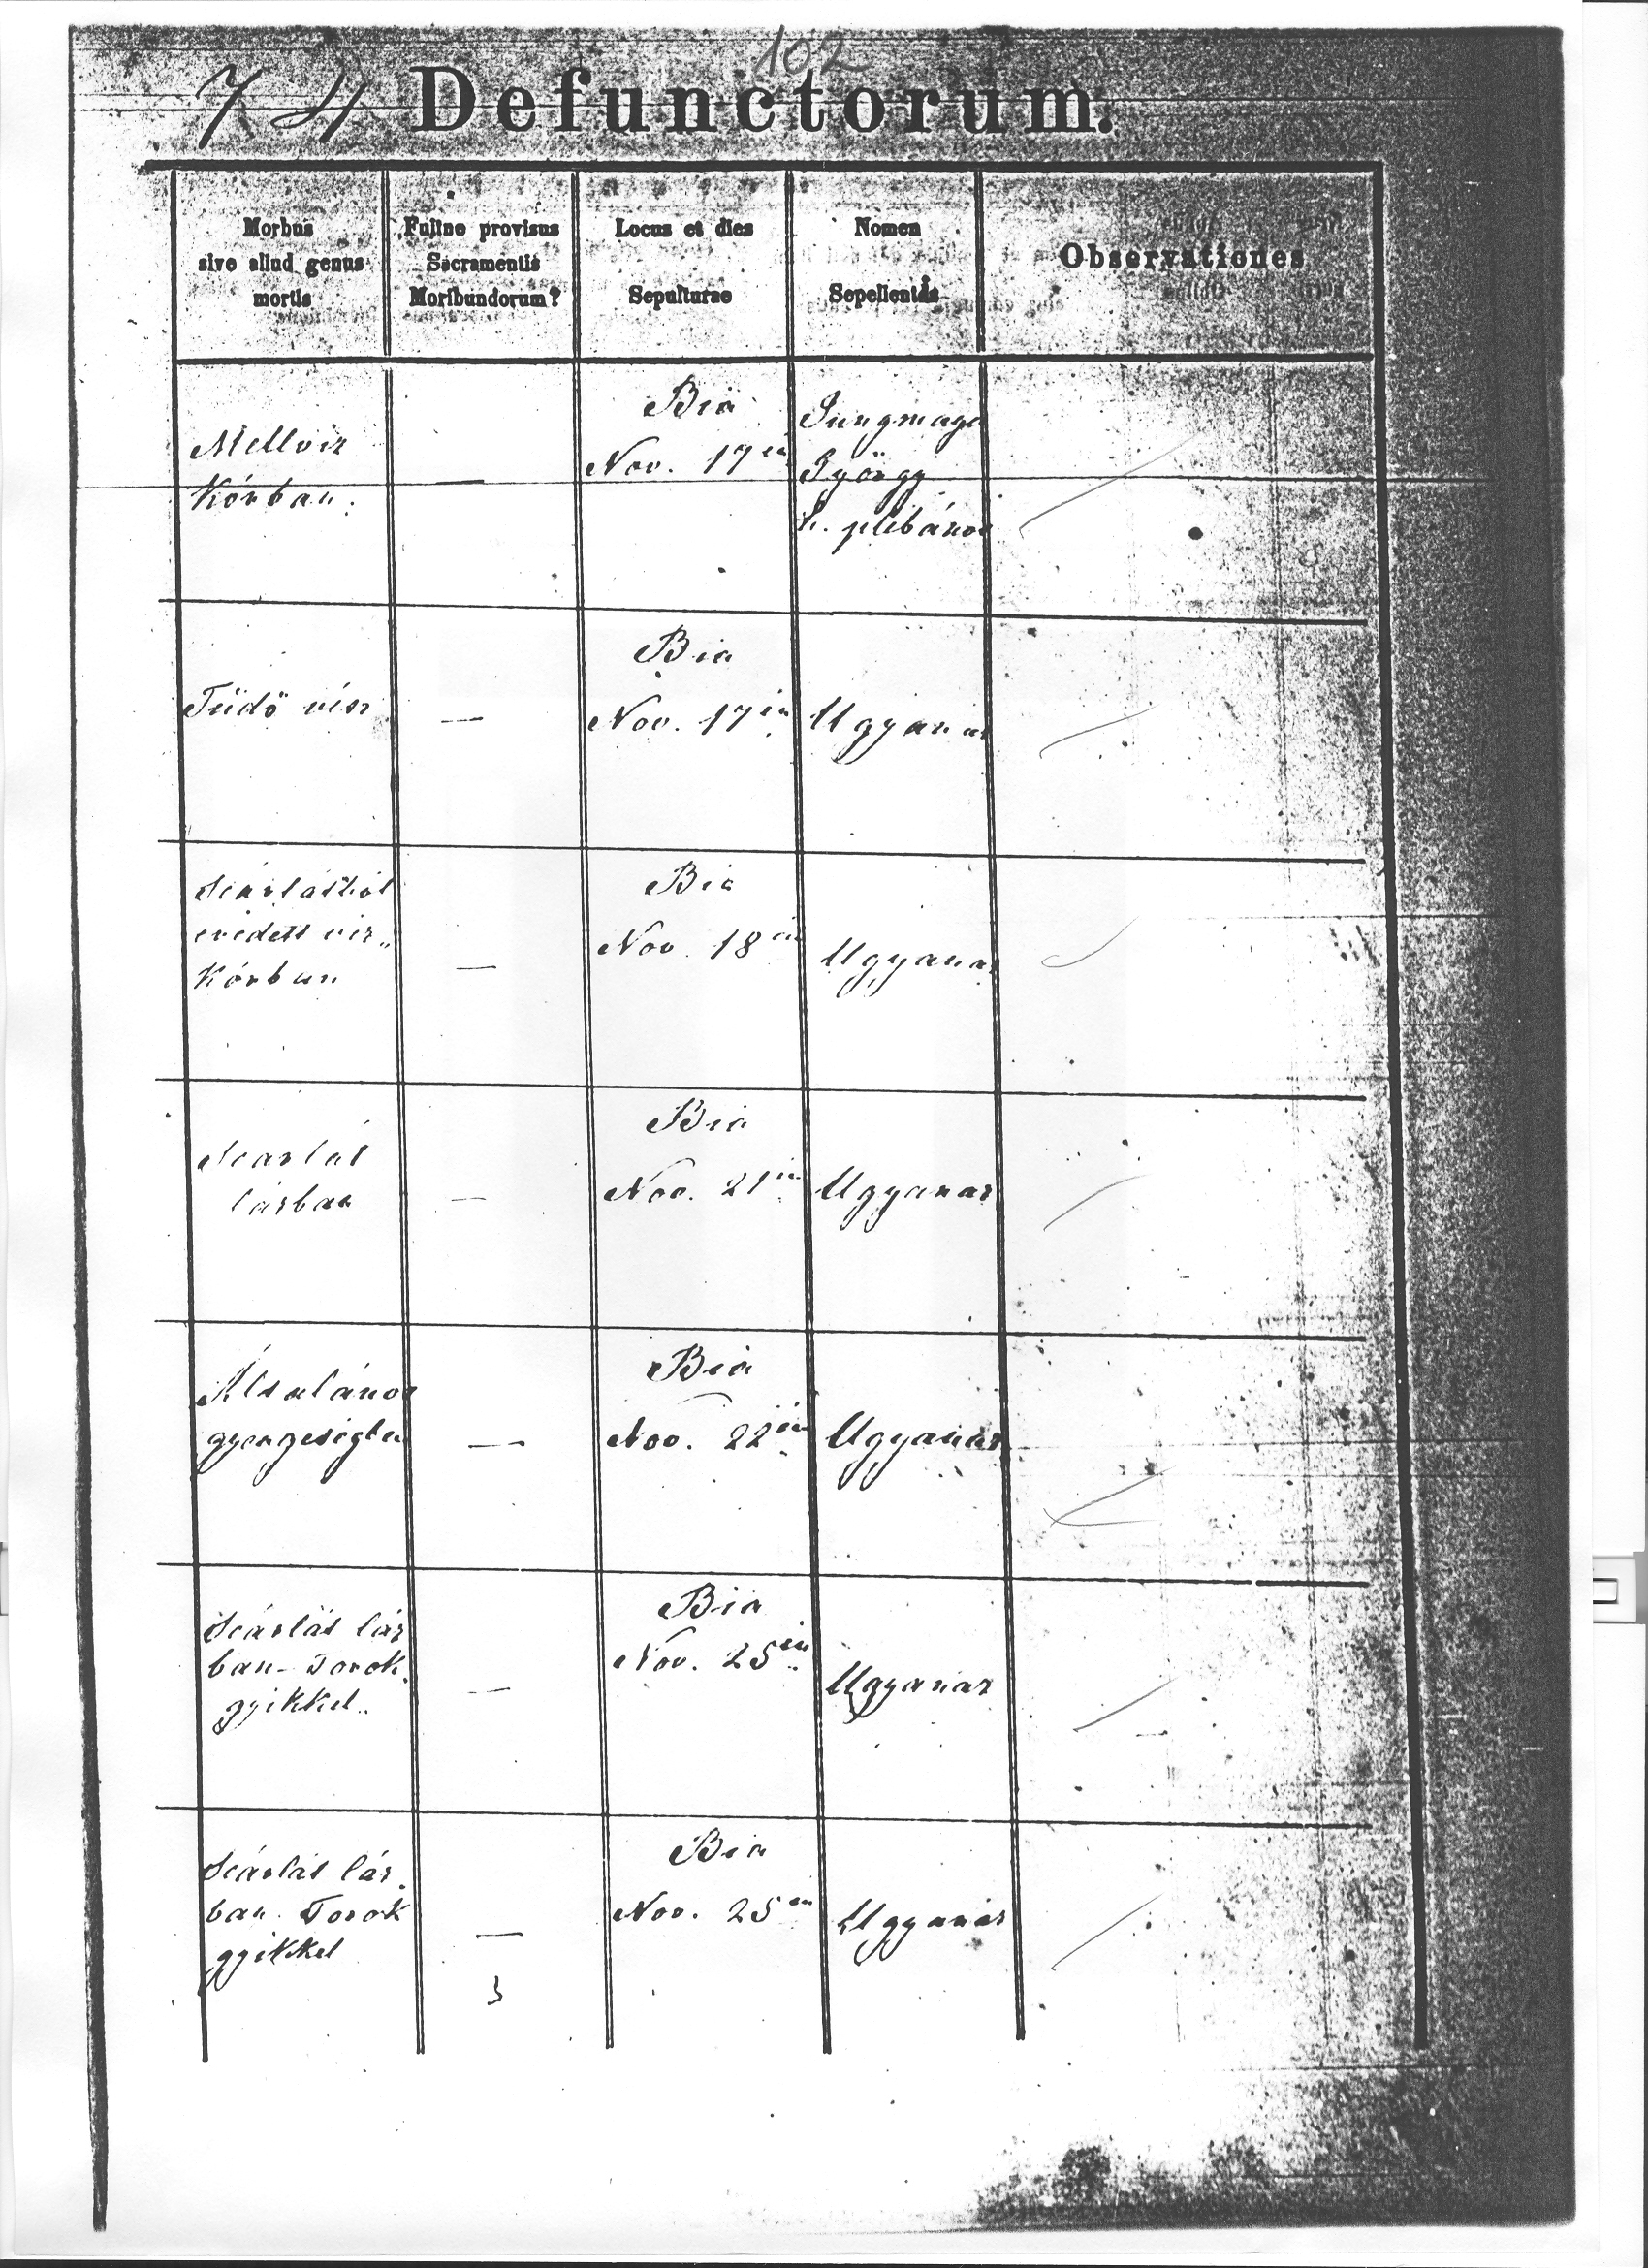 102
74 Defunctorum.
Morbus
sive aliud genus
mortis
Fuitne provisus
Sacramentis
Moribundorum?
Locus et dies
Sepulturae
Nomen
Sepelientis
Observationes
Mellviz
kórban.
—
Bia
Nov. 17én
György
h. plébános
Tüdő vész
—
Bia
Nov. 17én
Ugyanaz
Skárlátból
eredett viz„
kórban
—
Bia
Nov. 18án
Ugyanaz
Skarlát
lázban
—
Bia
Nov. 21én
Ugyanaz
Általános
gyengeségben
—
Bia
Nov. 22én
Ugyanaz
Skárlát láz
ban - Torok
gyikkel.
—
Bia
Nov. 25én
Ugyanaz
Skárlát láz
ban. Torok
gyikkel
—
Bia
Nov. 25én
Ugyanaz